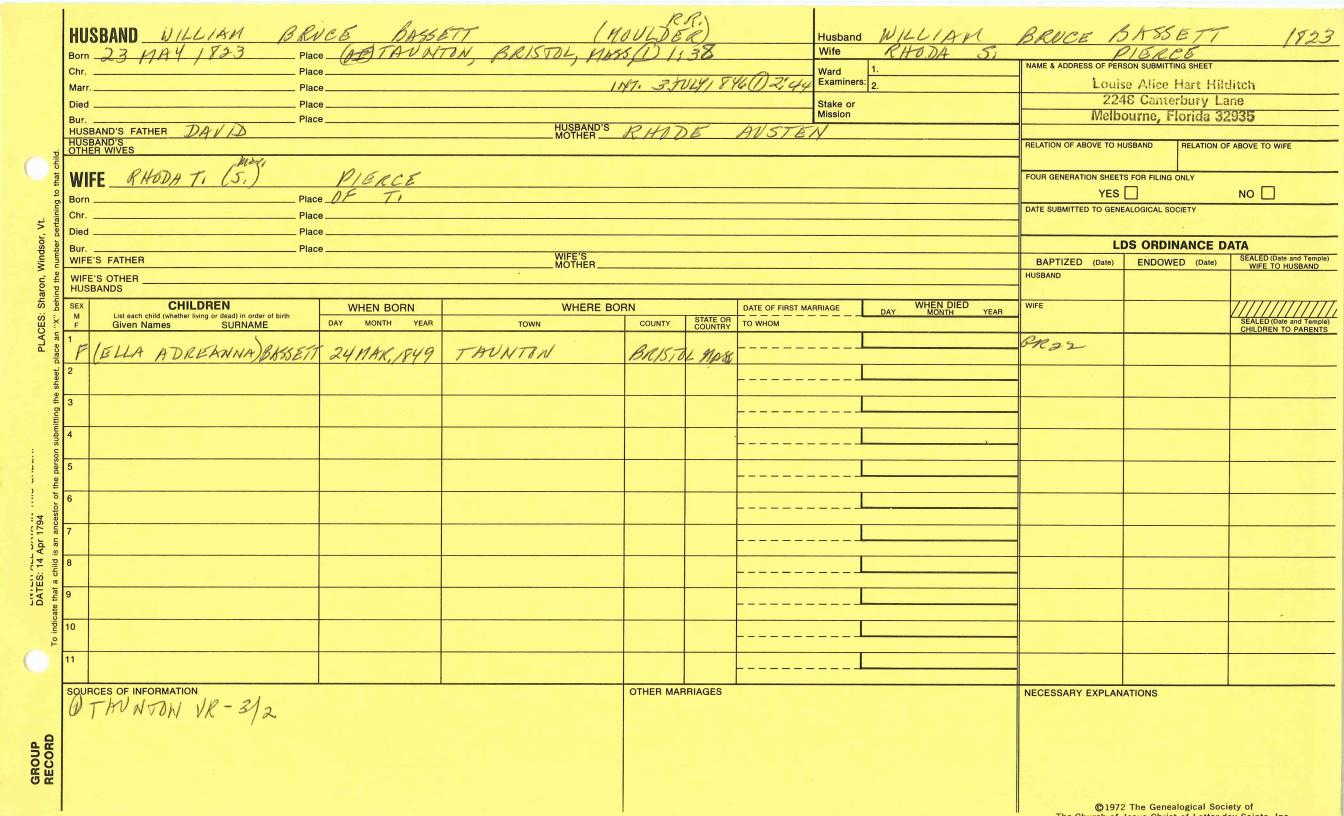 HUSBAND WILLIAM BRUCE BASSETT (MOULDER) R.R.
Born 23 MAY 1823 Place TAUNTON, BRISTOL, MASS, (1) 1:38
Chr. Place
Marr. Place INT. 3 JULY 1846 (1) 2:44
Died Place
Bur. Place
HUSBAND'S FATHER DAVID HUSBAND'S MOTHER RHODE AUSTEN
HUSBAND'S OTHER WIVES
WIFE RHODA T. (S.) PIERCE
Born Place OF T.
Chr. Place
Died Place
Bur. Place
WIFE'S FATHER WIFE'S MOTHER
WIFE'S OTHER HUSBANDS
Husband WILLIAM BRUCE BASSETT 1823
Wife RHODA S. PIERCE
Ward Examiners: 1.
2.
Stake or Mission
NAME & ADDRESS OF PERSON SUBMITTING SHEET
Louise Alice Hart Hilditch
2248 Canterbury Lane
Melbourne, Florida 32935
RELATION OF ABOVE TO HUSBAND RELATION OF ABOVE TO WIFE
FOUR GENERATION SHEETS FOR FILING ONLY
YES NO
DATE SUBMITTED TO GENEALOGICAL SOCIETY
LDS ORDINANCE DATA
BAPTIZED (Date) ENDOWED (Date) SEALED (Date and Temple) WIFE TO HUSBAND
HUSBAND
WIFE
SEALED (Date and Temple) CHILDREN TO PARENTS
SEX M F
CHILDREN
List each child (whether living or dead) in order of birth
Given Names SURNAME
WHEN BORN
DAY MONTH YEAR
WHERE BORN
TOWN COUNTY STATE OR COUNTRY
DATE OF FIRST MARRIAGE
TO WHOM
WHEN DIED
DAY MONTH YEAR
1 F (ELLA ADREANNA) BASSETT 24 MAR, 1849 TAUNTON BRISTOL Mass
2
3
4
5
6
7
8
9
10
11
SOURCES OF INFORMATION
(1) TAUNTON VR - 3/2
OTHER MARRIAGES
NECESSARY EXPLANATIONS
©1972 The Genealogical Society of
The Church of Jesus Christ of Latter-day Saints, Inc.
PLACES: Sharon, Windsor, Vt.
DATES: 14 Apr 1794
To indicate that a child is an ancestor of the person submitting the sheet, place an "X" behind the number pertaining to that child.
GROUP RECORD